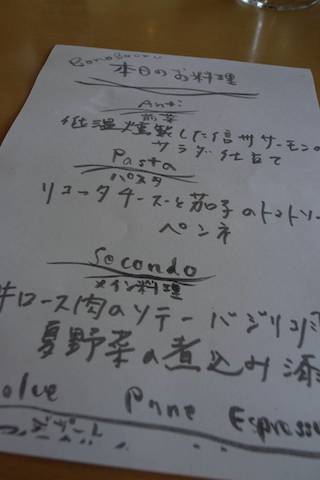 本日のお料理
Anti
前菜
低温燻製した信州サーモンの
サラダ仕立て
Pasta
パスタ
リコッタチーズと茄子のトマトソー
ペンネ
Secondo
メイン料理
牛ロース肉のソテー バジリコ
夏野菜の煮込み添
olve Pane Espresso
デザート